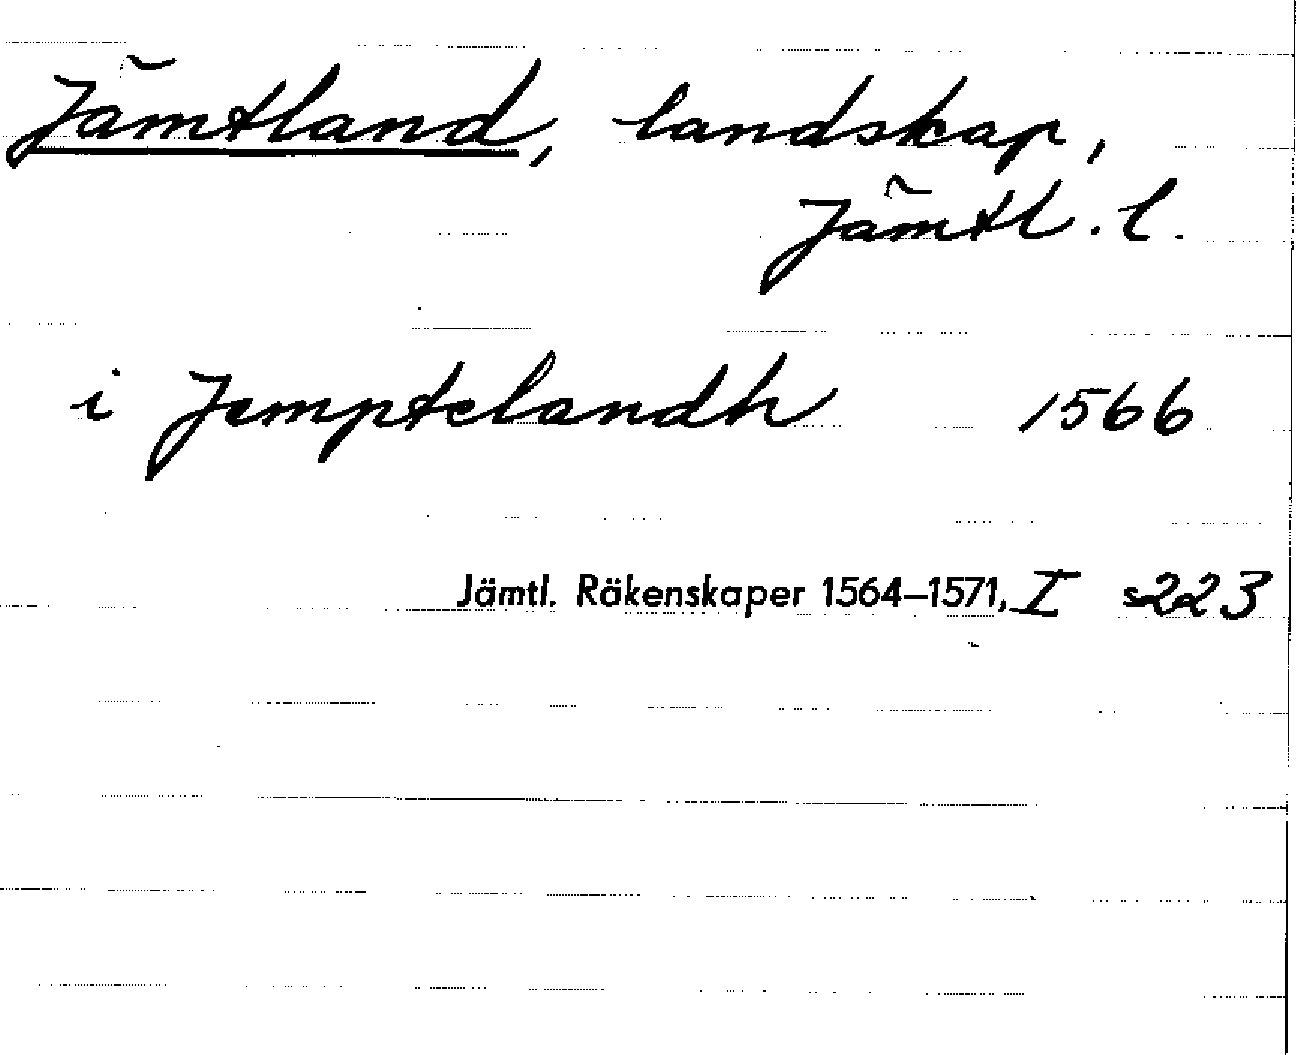 Jämtland, landskap,
Jämtl. l.
i Jemptelandh 1566
Jämtl. Räkenskaper 1564–1571, I s 223